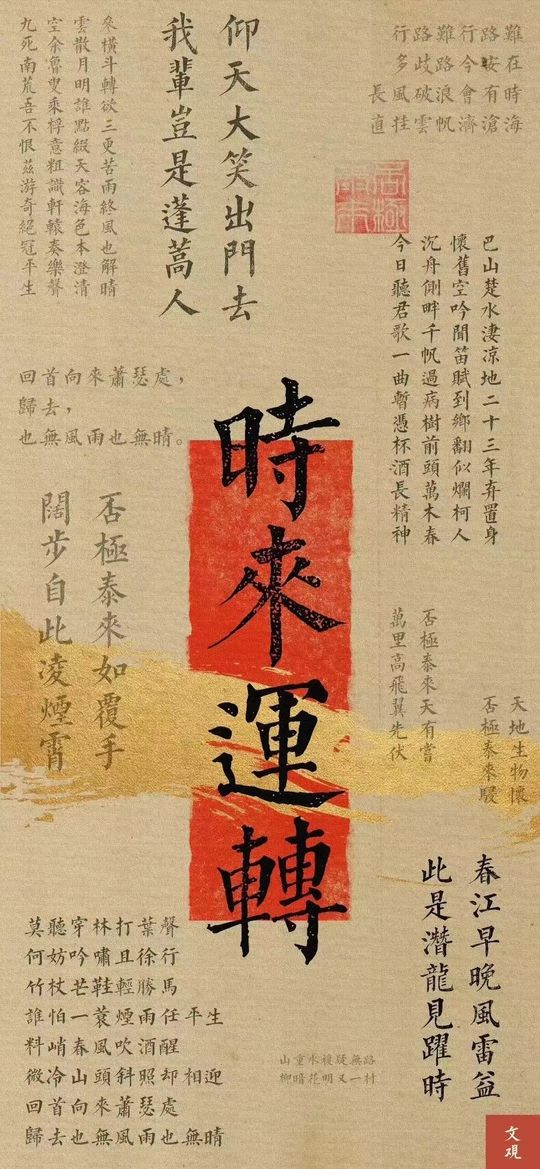 行路難行路難
多歧路今安在
長風破浪會有時
直挂雲帆濟滄海
仰天大笑出門去
我輩豈是蓬蒿人
參橫斗轉欲三更苦雨終風也解晴
雲散月明誰點綴天容海色本澄清
空余魯叟乘桴意粗識軒轅奏樂聲
九死南荒吾不恨茲游奇絕冠平生
巴山楚水淒凉地二十三年弃置身
懷舊空吟聞笛賦到鄉翻似爛柯人
沉舟側畔千帆過病樹前頭萬木春
今日聽君歌一曲暫憑杯酒長精神
回首向來蕭瑟處，
歸去，
也無風雨也無晴。
時來運轉
否極泰來如覆手
闊步自此凌煙霄
天地生物懷
否極泰來
否極泰來天有嘗
萬里高飛翼先伏
春江早晚風雷益
此是潛龍見躍時
莫聽穿林打葉聲
何妨吟嘯且徐行
竹杖芒鞋輕勝馬
誰怕一蓑煙雨任平生
料峭春風吹酒醒
微冷山頭斜照却相迎
回首向來蕭瑟處
歸去也無風雨也無晴
山重水複疑無路
柳暗花明又一村
文观